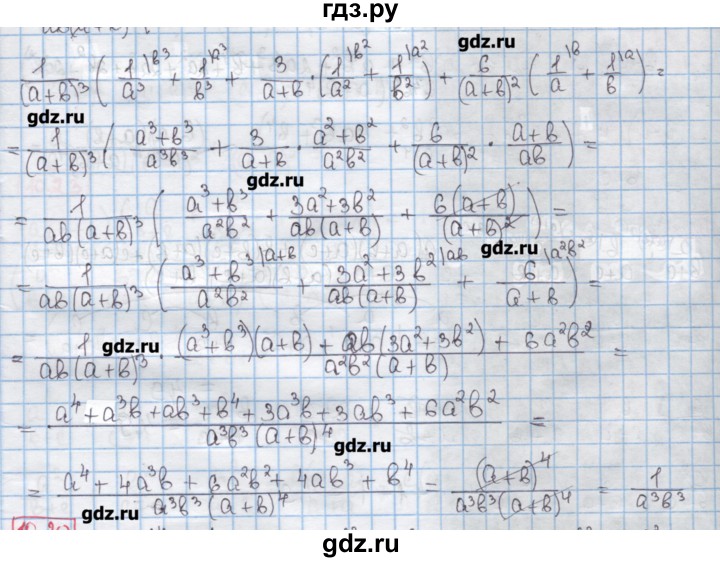 гдз.ру
1/(a+b)^3 (1/a^3 |b^3 + 1/b^3 |a^3 + 3/(a+b) · (1/a^2 |b^2 + 1/b^2 |a^2) + 6/(a+b)^2 (1/a |b + 1/b |a) =
gdz.ru
gdz.ru
= 1/(a+b)^3 ((a^3+b^3)/(a^3b^3) + 3/(a+b) · (a^2+b^2)/(a^2b^2) + 6/(a+b)^2 · (a+b)/(ab)) =
gdz.ru
= 1/(ab(a+b)^3) ((a^3+b^3)/(a^2b^2) + (3a^2+3b^2)/(ab(a+b)) + 6(a+b)/(a+b)^2) =
gdz.ru
= 1/(ab(a+b)^3) ((a^3+b^3)/(a^2b^2) |a+b + (3a^2+3b^2)/(ab(a+b)) |ab + 6/(a+b) |a^2b^2) =
gdz.ru
= 1/(ab(a+b)^3) · ((a^3+b^3)(a+b) + ab(3a^2+3b^2) + 6a^2b^2)/(a^2b^2(a+b)) =
= (a^4+a^3b+ab^3+b^4+3a^3b+3ab^3+6a^2b^2)/(a^3b^3(a+b)^4) =
gdz.ru
= (a^4+4a^3b+6a^2b^2+4ab^3+b^4)/(a^3b^3(a+b)^4) = (a+b)^4/(a^3b^3(a+b)^4) = 1/(a^3b^3)
gdz.ru
gdz.ru